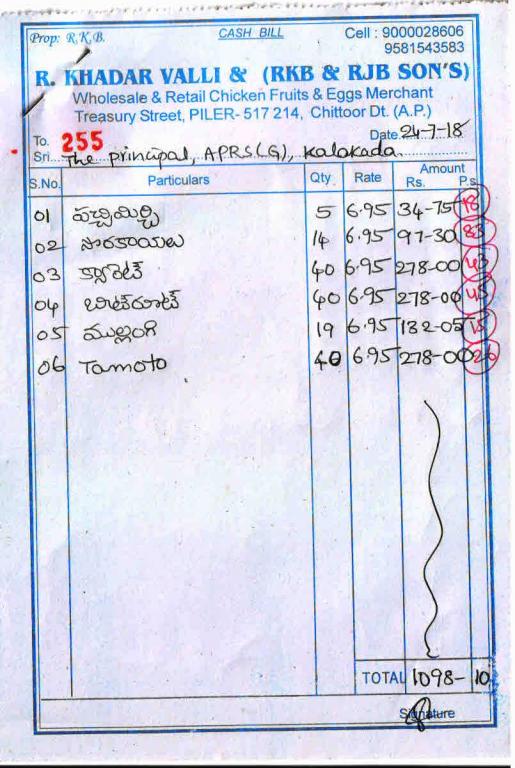 Prop: R.K.B. CASH BILL Cell : 9000028606
9581543583
R. KHADAR VALLI & (RKB & RJB SON'S)
Wholesale & Retail Chicken Fruits & Eggs Merchant
Treasury Street, PILER- 517 214, Chittoor Dt. (A.P.)
To. 255 Date 24-7-18
Sri... The principal, APRS(G), Kalakada
S.No. Particulars Qty. Rate Amount
Rs. P.s
01 పచ్చిమిర్చి 5 6.95 34-75 18
02 సొరకాయలు 14 6.95 97-30 83
03 క్యారెట్ 40 6.95 278-00 43
04 బీట్‌రూట్ 40 6.95 278-00 45
05 ముల్లంగి 19 6.95 132-05 15
06 Tamoto 40 6.95 278-00 26
TOTAL 1098-10
Signature